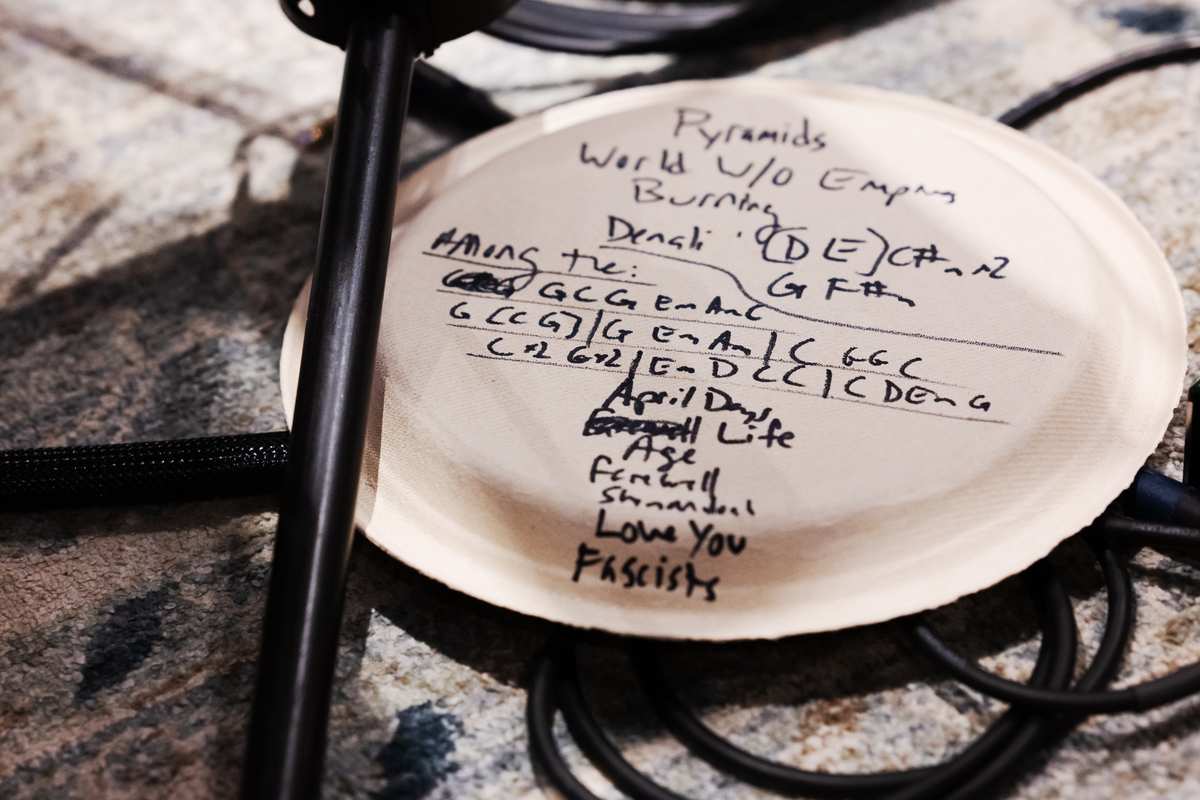 Pyramids
World W/O Empires
Burning
Denali : (D E) C#m x2
G F#m
Among the:
G C G Em Am C
G [C C G] | G Em Am | C G G C
C x2 G x2 | Em D C C | C D Em G
April Days
Life
Age
Farewell
Shenandoah
Love You
Fascists